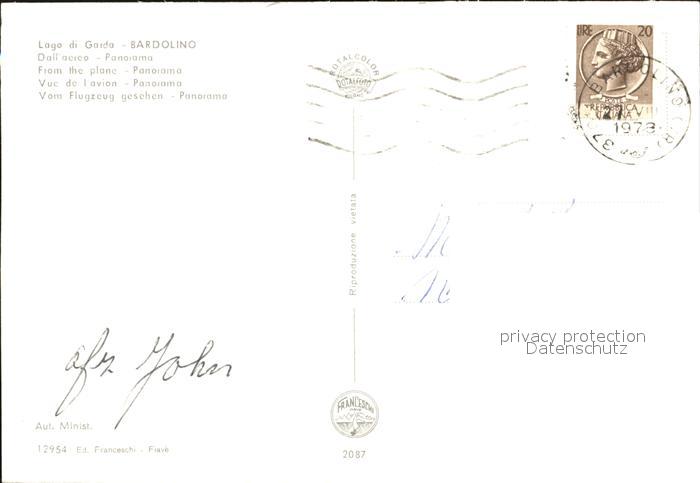 Lago di Garda - BARDOLINO
Dall'aereo - Panorama
From the plane - Panorama
Vue de l'avion - Panorama
Vom Flugzeug gesehen - Panorama
ROTALCOLOR
ROTALFOTO
LIRE 20
REPUBBLICA
ITALIANA
BARDOLINO (VR)
VIII
1973
Riproduzione vietata
privacy protection
Datenschutz
afz John
FRANCESCHI
Aut. Minist.
12954 Ed. Franceschi - Fiavè
2087